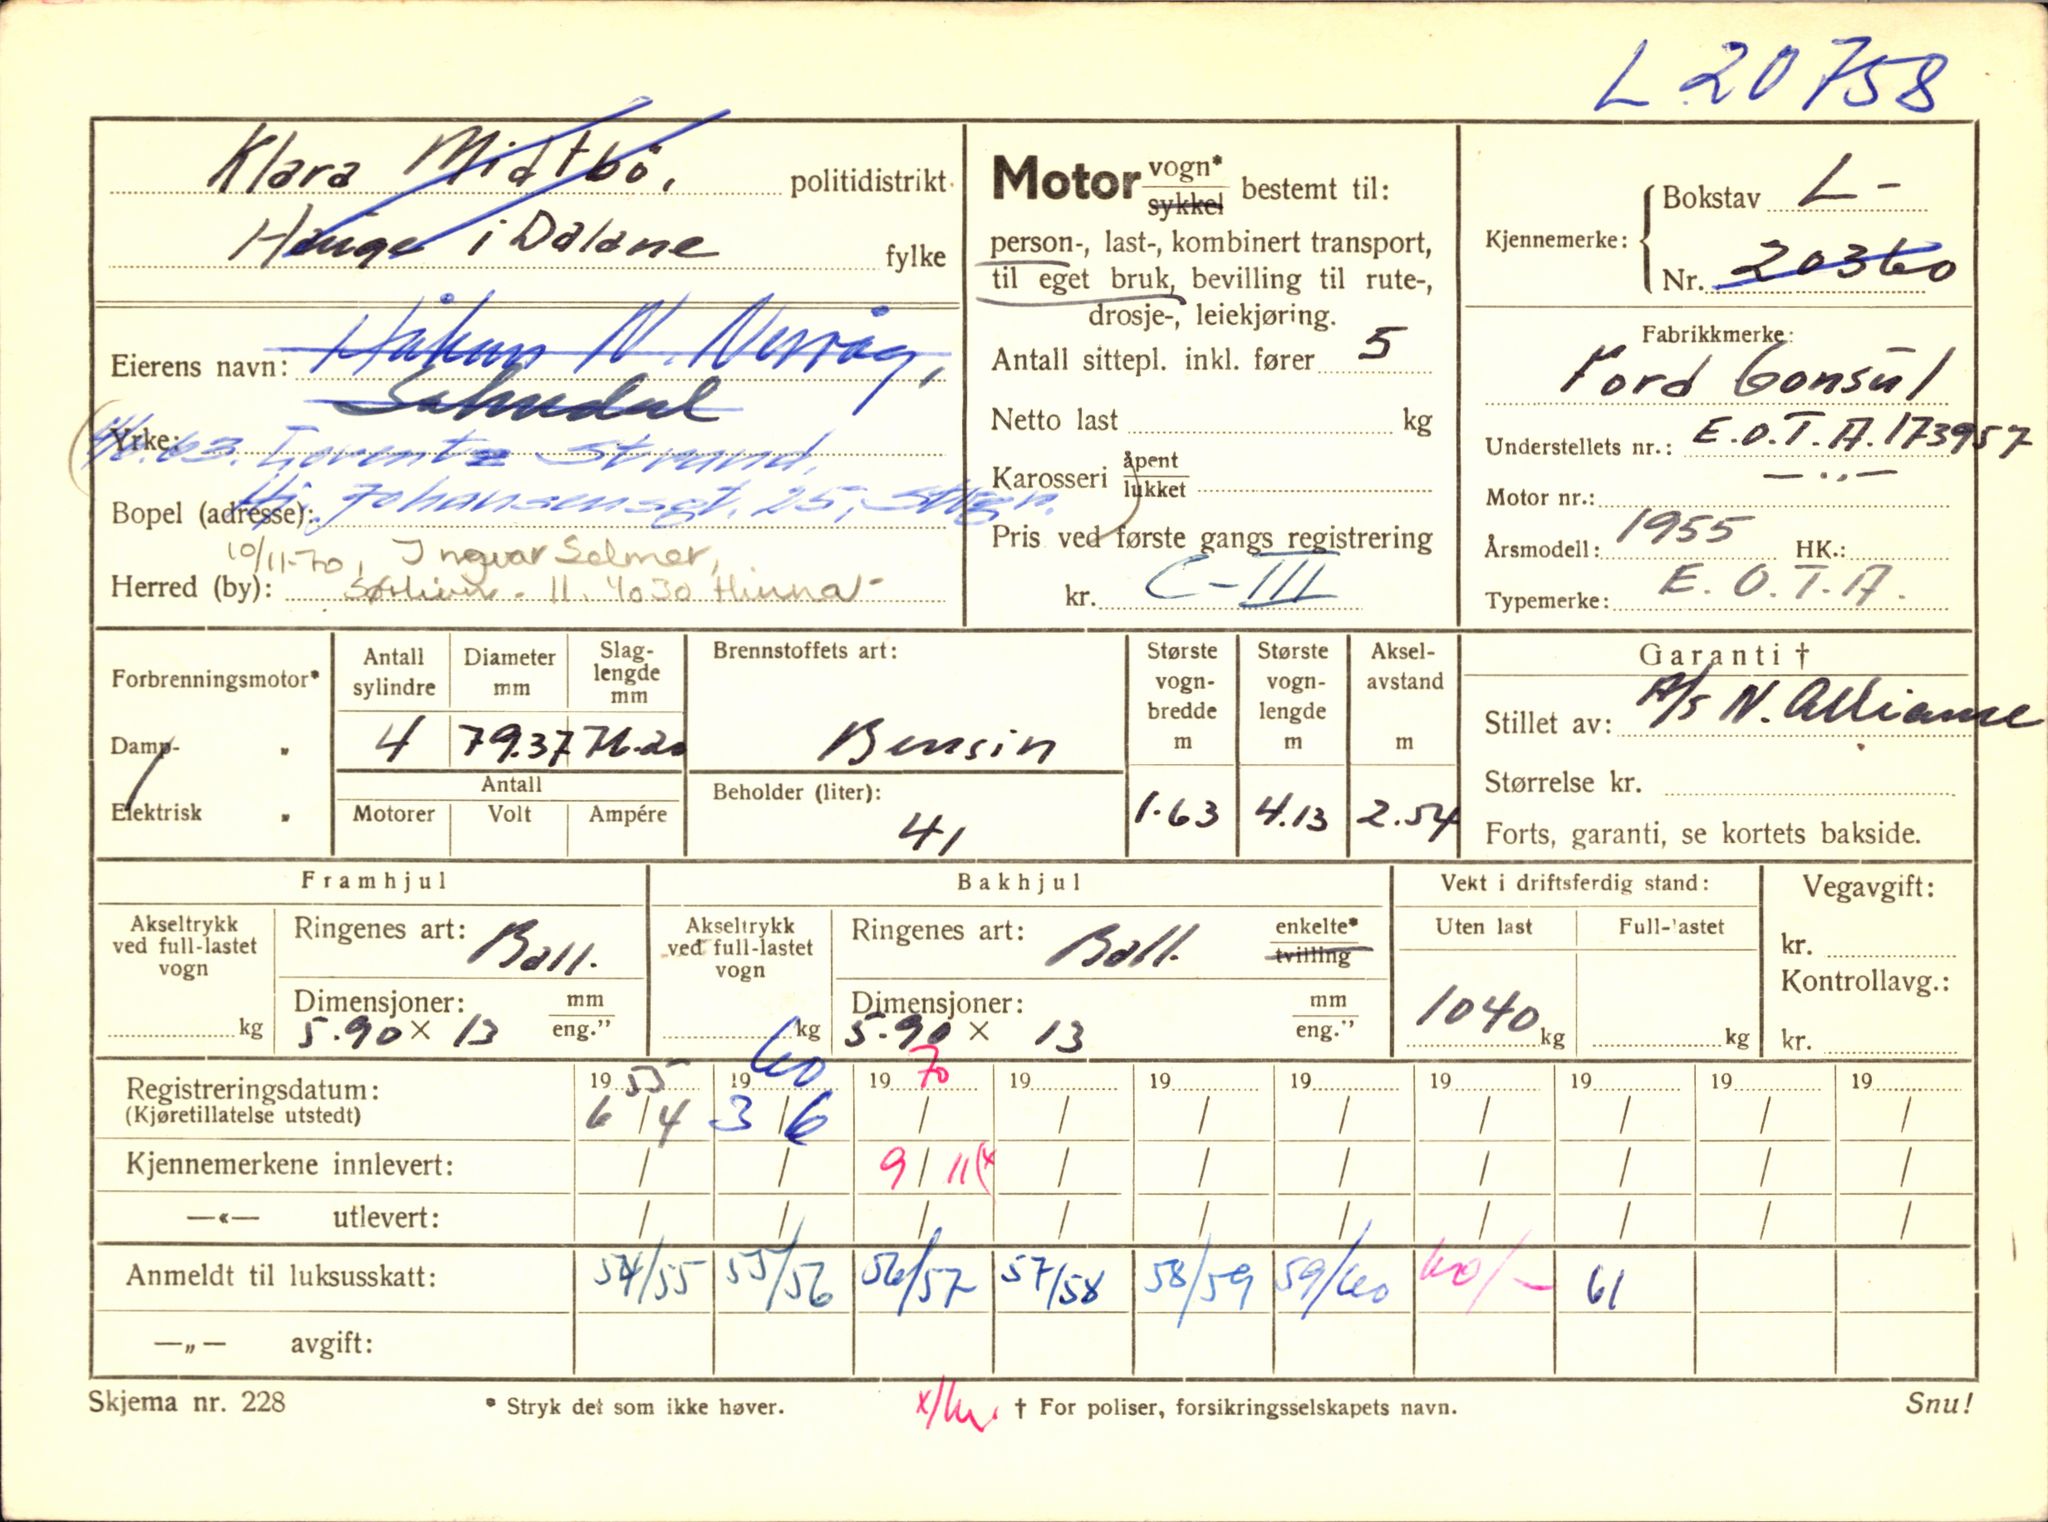 L 20758
Klara Midtbö, politidistrikt
Hauge i Dalane fylke
Eierens navn: Håkon N. Nesvåg,
Yrke: 63. Lorentz Strand,
Bopel (adresse): Hj. Johansensgt. 25,
10/11-70, Ingvar Selmer,
Herred (by): 11. 4030 Hinna
Motor vogn* sykkel bestemt til:
person-, last-, kombinert transport,
til eget bruk, bevilling til rute-,
drosje-, leiekjøring.
Antall sittepl. inkl. fører 5
Netto last kg
Karosseri åpent lukket
Pris ved første gangs registrering
kr. C-III
Kjennemerke: Bokstav L-
Nr. 20360
Fabrikkmerke:
Ford Consul
Understellets nr.: E.O.T.A. 173957
Motor nr.: —..—
Årsmodell: 1955 HK.:
Typemerke: E.O.T.A.
Forbrenningsmotor*
Damp- „
Elektrisk „
Antall sylindre 4
Diameter mm 79.37
Slaglengde mm 76.20
Antall
Motorer Volt Ampére
Brennstoffets art:
Bensin
Beholder (liter):
41
Største vogn-bredde m 1.63
Største vogn-lengde m 4.13
Aksel-avstand m 2.54
Garanti †
Stillet av: A/S N. Alliance
Størrelse kr.
Forts, garanti, se kortets bakside.
Framhjul
Akseltrykk ved full-lastet vogn kg
Ringenes art: Ball.
Dimensjoner: mm eng."
5.90 × 13
Bakhjul
Akseltrykk ved full-lastet vogn kg
Ringenes art: Ball. enkelte* tvilling
Dimensjoner: mm eng."
5.90 × 13
Vekt i driftsferdig stand:
Uten last Full-lastet
1040 kg kg
Vegavgift:
kr.
Kontrollavg.:
kr.
Registreringsdatum: 1955 1960 1970 19 19 19 19 19 19 19
(Kjøretillatelse utstedt) 6/4 3/6 / / / / / / / /
Kjennemerkene innlevert: / / 9/11 (x / / / / / / /
—«— utlevert: / / / / / / / / / /
Anmeldt til luksusskatt: 54/55 55/56 56/57 57/58 58/59 59/60 60/- 61
—„— avgift:
Skjema nr. 228 * Stryk det som ikke høver. † For poliser, forsikringsselskapets navn. Snu!